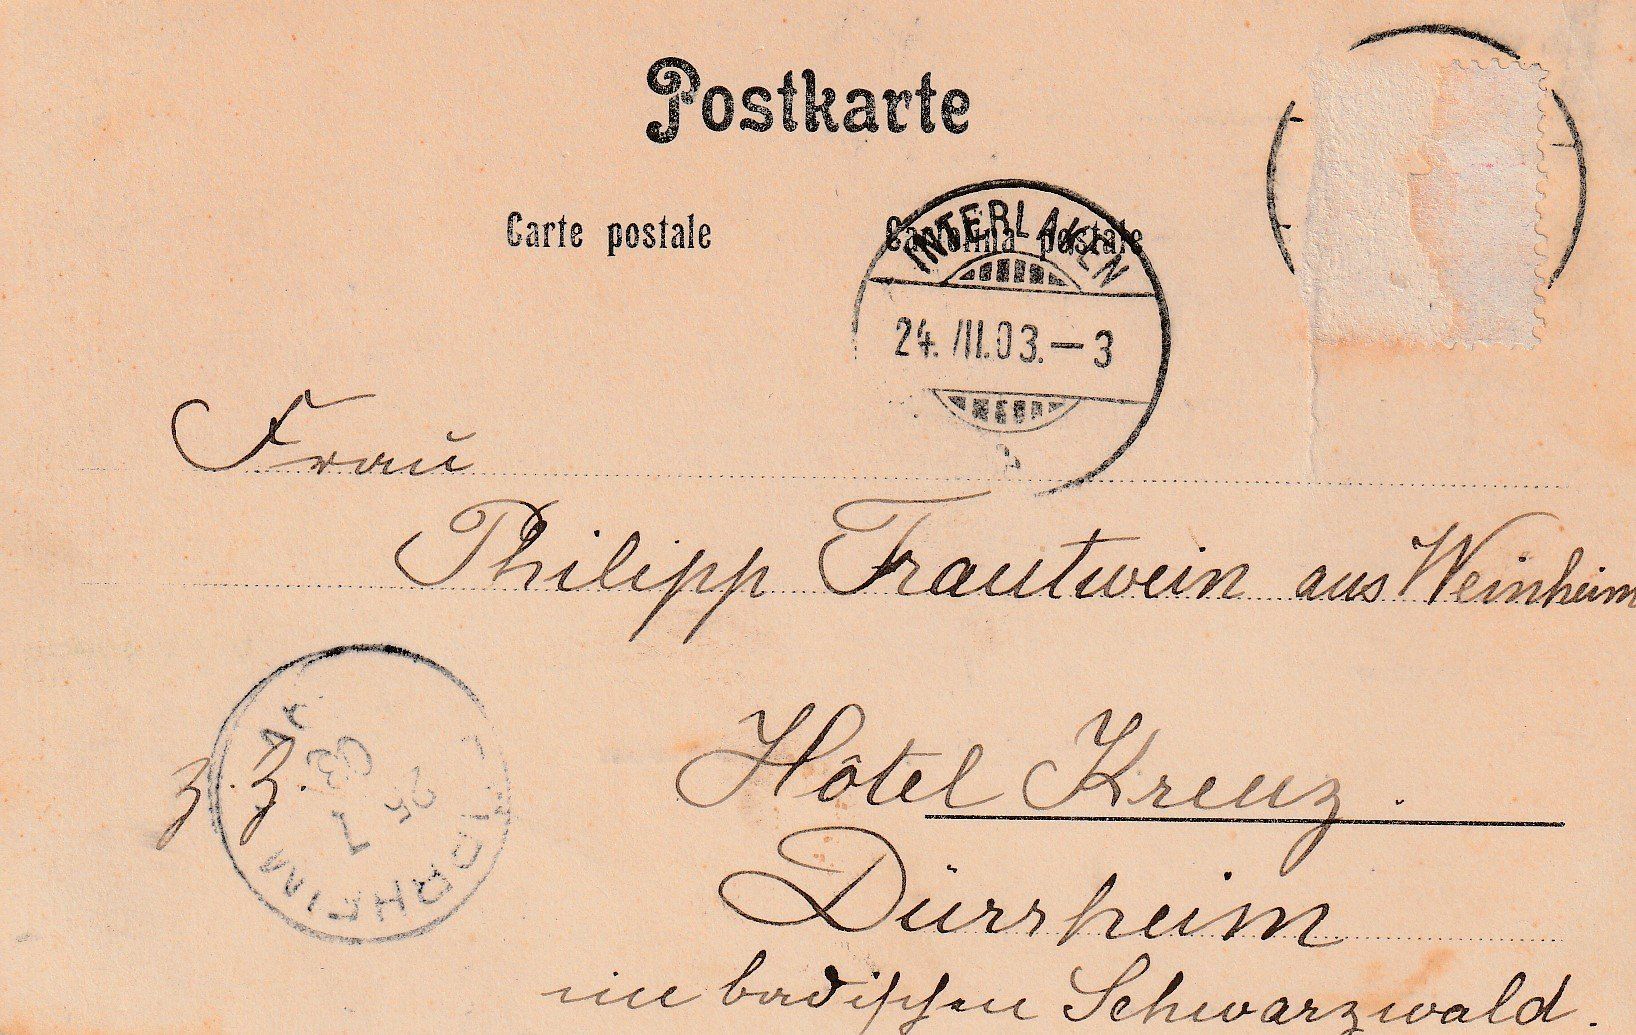 Postkarte
Carte postale Cartolina postale
INTERLAKEN
24. III.03.–3
Frau
Philipp Trautwein aus Weinheim
Hôtel Kreuz.
z. Z.
Dürrheim
im badischen Schwarzwald.